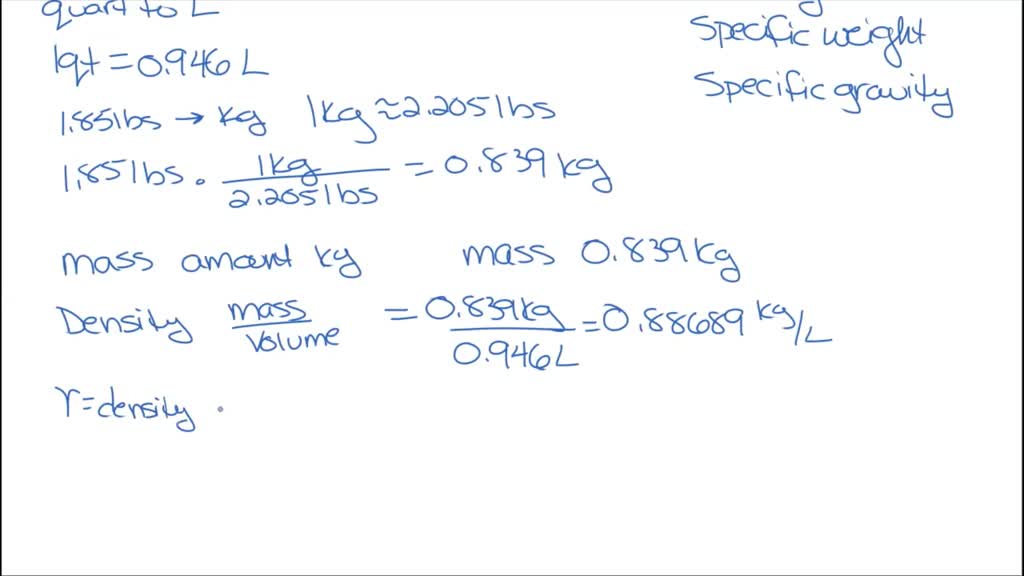 quart to L
1qt = 0.946 L
1.85 lbs → kg 1kg ≈ 2.205 lbs
1.85 lbs · 1kg / 2.205 lbs = 0.839 kg
mass amount kg mass 0.839 kg
Density mass / volume = 0.839 kg / 0.946 L = 0.88689 kg/L
γ = density ·
Specific weight
Specific gravity